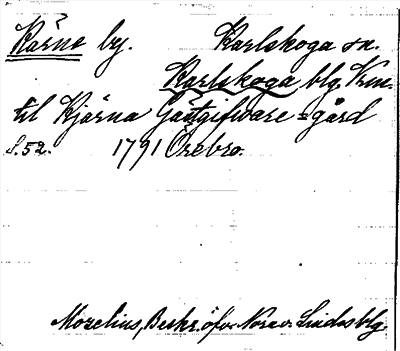 Kärne by. Karlskoga sn.
Karlskoga blg. Vrm.
til Kjärna Gästgifware=gård
S. 52. 1791 Örebro.
Mozelius, Beskr. öfv. Nora o. Lindes blg.